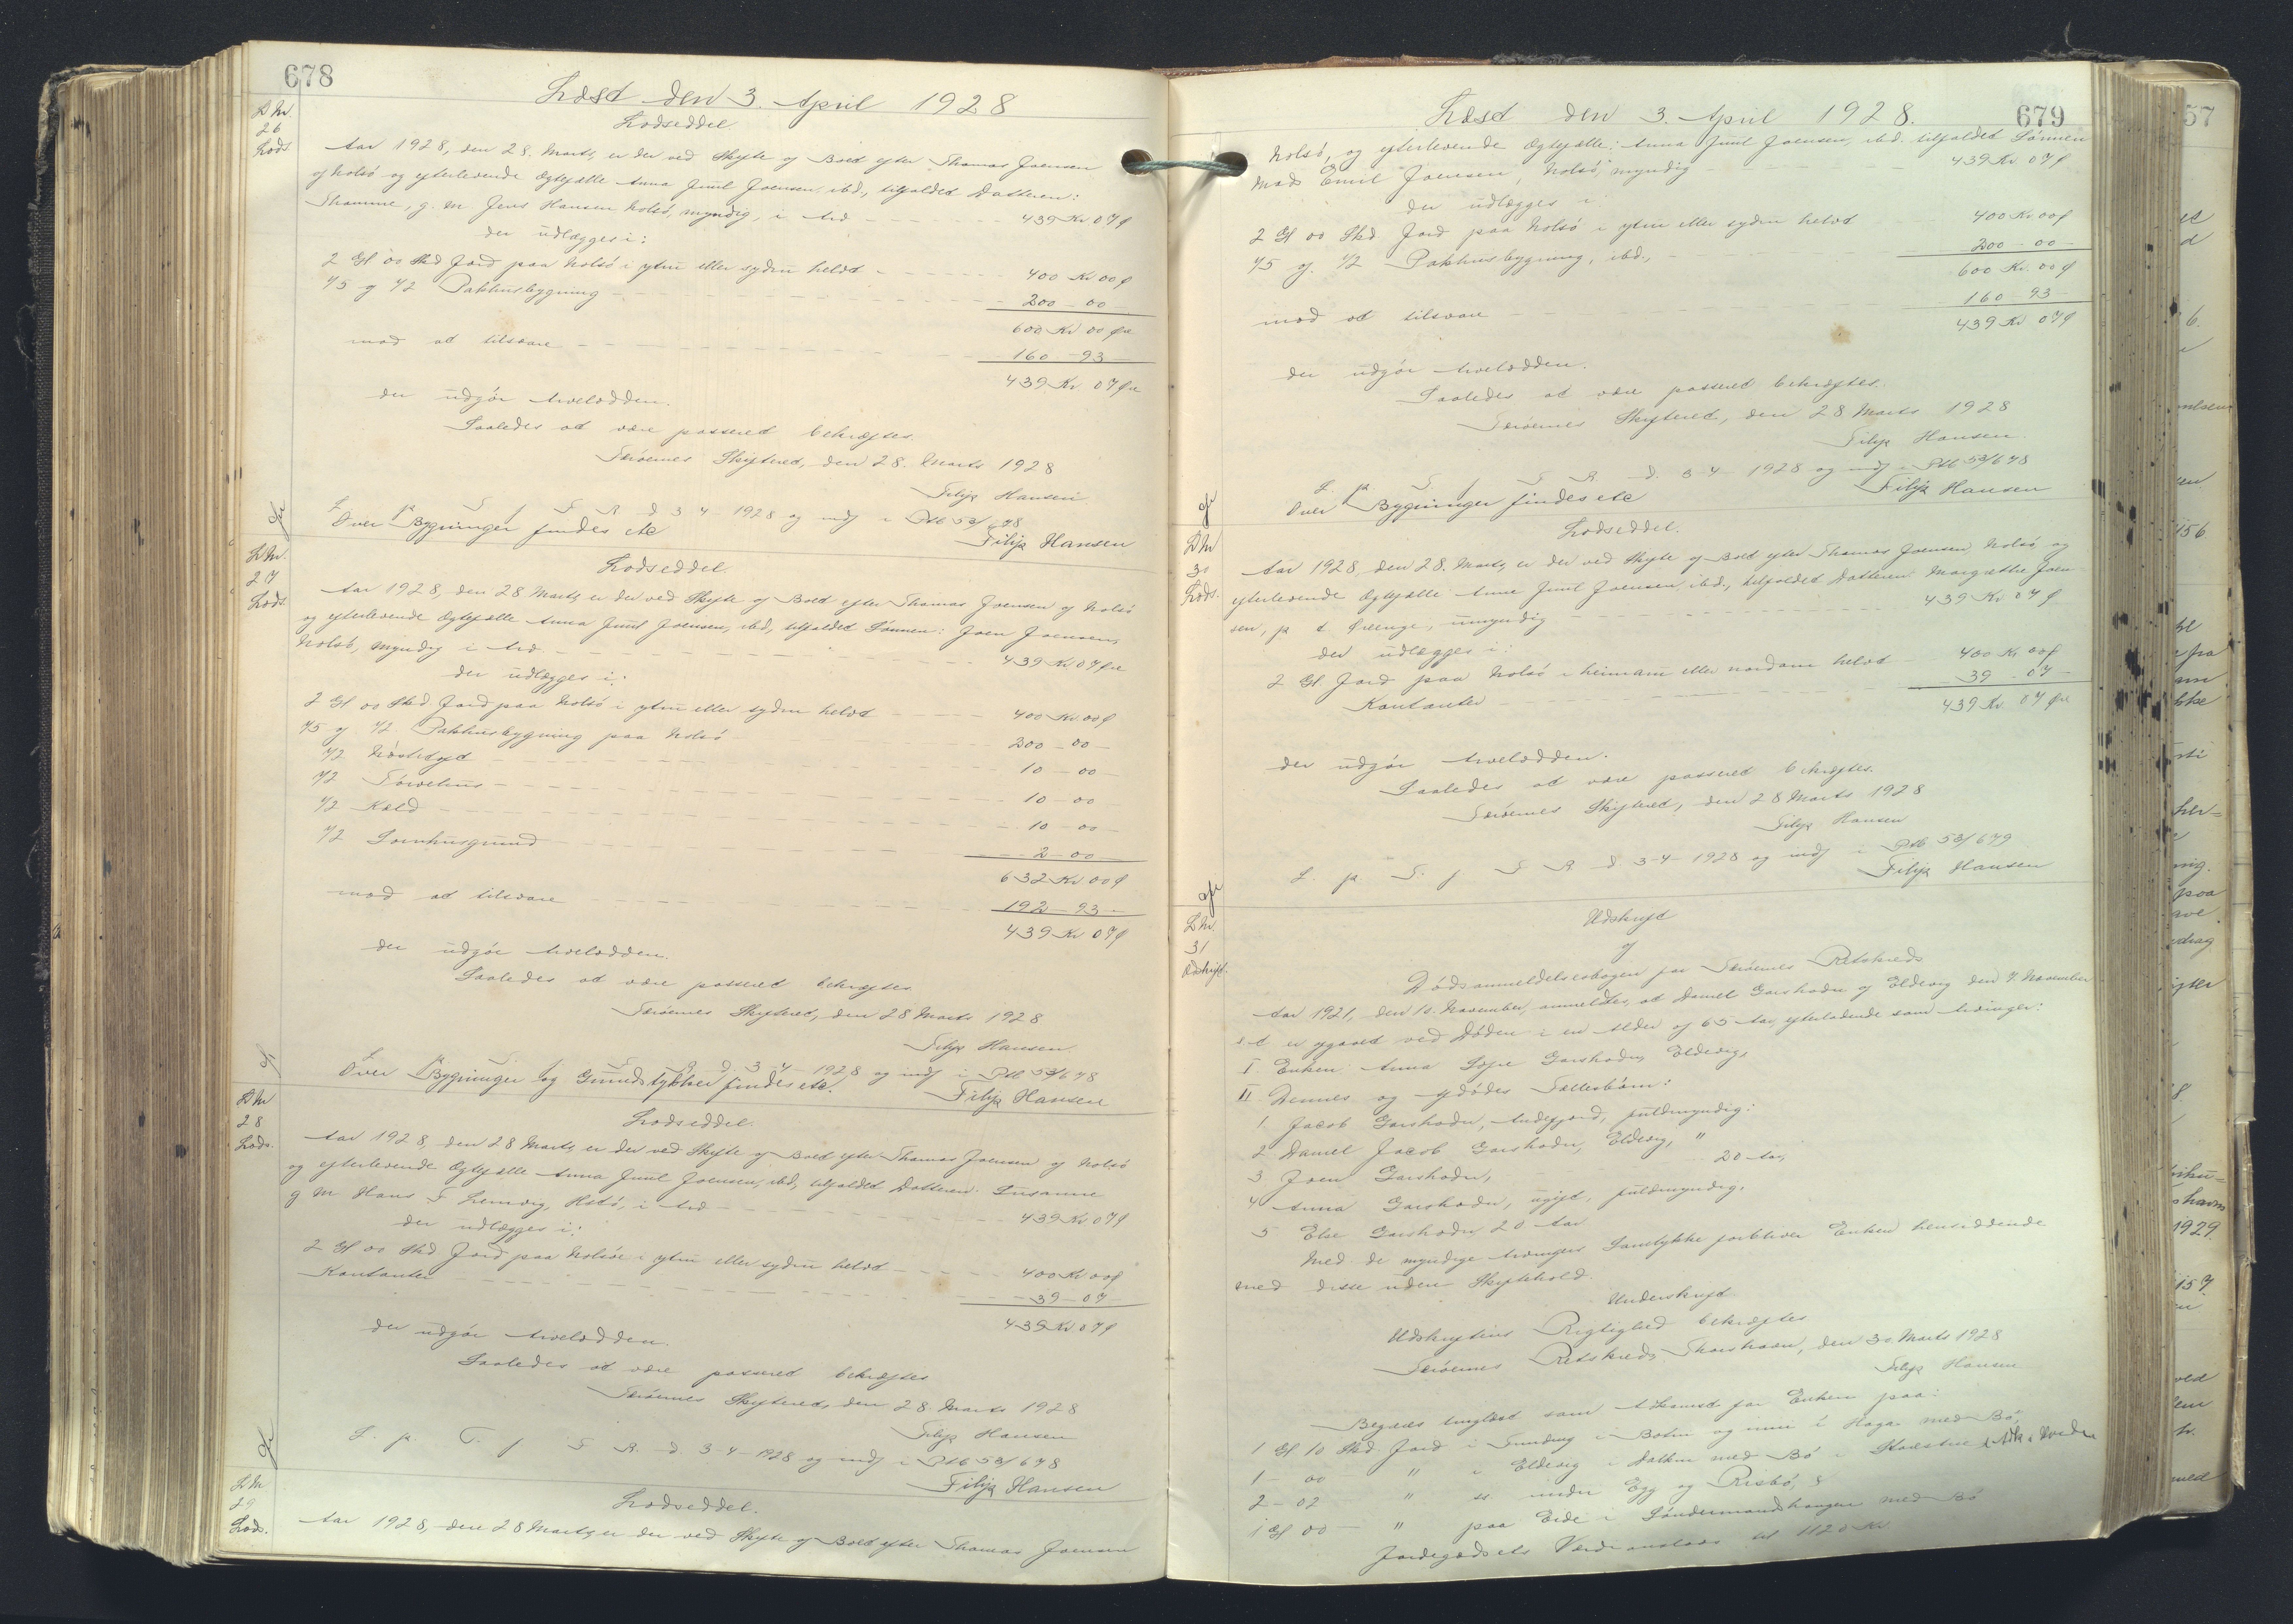 678
Læst den 3. April 1928
L. Nr.
26
Lods.
Lodseddel.
Aar 1928, den 28. Marts, er der ved Skifte af Boet efter Thomas Joensen
af Nolsö og efterlevende Ægtefælle Anna Juul Joensen, ibd., tilfaldet Datteren:
g. m. Jens Hansen Nolsö, myndig, i Arv 439 Kr. 07 Ø
der udlægges i:
2 Gl 00 Skd Jord paa Nolsö i ytru eller sydru helvt 400 Kr 00 Ø
1/5 af 1/2 Pakhusbygning 200 - 00 -
600 Kr 00 Øre
mod at tilsvare 160 - 93 -
439 Kr. 07 Øre
der udgör Arvelodden.
Saaledes at være passeret bekræftes.
Færöernes Skifteret, den 28. Marts 1928
Filip Hansen
L. p. T. f. F. R. d. 3-4-1928 og indf i Ptb 53/678
Over Bygninger findes etc
Filip Hansen
L. Nr.
27
Lods.
Lodseddel.
Aar 1928, den 28 Marts, er der ved Skifte af Boet efter Thomas Joensen af Nolsö
og efterlevende Ægtefælle Anna Juul Joensen, ibd., tilfaldet Sönnen: Joen Joensen,
Nolsö, myndig i Arv 439 Kr 07 Øre
der udlægges i:
2 Gl 00 Skd Jord paa Nolsö i ytru eller sydru helvt 400 Kr. 00 Ø
1/5 af 1/2 Pakhusbygning paa Nolsö 200 - 00 -
1/2 10 - 00 -
1/2 Törvehus 10 - 00
1/2 10 - 00 -
1/2 2 - 00 -
632 Kr 00 Ø
mod at tilsvare 192 - 93 -
439 Kr 07 Ø
der udgör Arvelodden.
Saaledes at være passeret bekræftes
Færöernes Skifteret, den 28 Marts 1928
Filip Hansen
L. p. T. f. F. R. d. 3-4-1928 og indf i Ptb 53/678
Over Bygninger og Grundstykker findes etc.
Filip Hansen
L. Nr
28
Lods.
Lodseddel.
Aar 1928, den 28 Marts, er der ved Skifte af Boet efter Thomas Joensen af Nolsö
og efterlevende Ægtefælle Anna Juul Joensen, ibd., tilfaldet Datteren: Susanne
g m Hans F. i Arv 439 Kr 07 Ø
der udlægges i:
2 Gl 00 Skd Jord paa Nolsöe i ytru eller sydru helvt 400 Kr 00 Ø
Kontanter 39 - 07 -
439 Kr. 07 Ø
der udgör Arvelodden.
Saaledes at være passeret bekræftes
Færöernes Skifteret, den 28. Marts 1928
Filip Hansen
L. p. T. f. F. R. d. 3-4-1928 og indf i Ptb 53/678
Filip Hansen
L. Nr
29
Lods.
Lodseddel.
Aar 1928, den 28 Marts, er der ved Skifte af Boet efter Thomas Joensen
Læst den 3. April 1928.
679
Nolsö, og efterlevende Ægtefælle: Anna Juul Joensen, ibd. tilfaldet Sönnen
Mads Emil Joensen, Nolsö, myndig 439 Kr. 07 Ø
der udlægges i
2 Gl 00 Skd Jord paa Nolsö i ytru eller sydru helvt 400 Kr. 00 Ø
1/5 af 1/2 Pakhusbygning, ibd., 200 - 00 -
600 Kr. 00 Ø
mod at tilsvare 160 - 93 -
439 Kr 07 Ø
der udgör Arvelodden.
Saaledes at være passeret bekræftes.
Færöernes Skifteret, den 28 Marts 1928
Filip Hansen.
L. p. T. f. F. R. d. 3-4-1928 og indf i Ptb 53/678
Over Bygninger findes etc
Filip Hansen
L. Nr
30
Lods.
Lodseddel.
Aar 1928, den 28. Marts, er der ved Skifte af Boet efter Thomas Joensen, Nolsö, og
efterlevende Ægtefælle Anna Juul Joensen ibd., tilfaldet Datteren Margrethe Joen-
sen, p. t. umyndig 439 Kr 07 Ø
der udlægges i:
2 Gl Jord paa Nolsö i heimaru eller nordaru helvt 400 Kr 00 Ø
Kontanter 39 - 07 -
439 Kr. 07 Øre
der udgör Arvelodden.
Saaledes at være passeret bekræftes.
Færöernes Skifteret, den 28 Marts 1928
Filip Hansen
L. p. T. f. F. R. d. 3-4-1928 og indf i Ptb 53/679
Filip Hansen
L. Nr.
31
Udskrift.
Udskrift
af
Dödsanmeldelsesbogen for Færöernes Retskreds
Aar 1921, den 10. November, anmeldtes, at Daniel Garshodn af Eldevig den 7. November
s. A. er afgaaet ved Döden i en Alder af 65 Aar, efterladende som Arvinger:
I Enken: Anna Garshodn, Eldevig,
II Dennes og afdödes Fællesbörn:
1 Jacob Garshodn, Andefjord, fuldmyndig:
2 Daniel Jacob Garshodn, Eldevig, "
3 Joen Garshodn, 20 Aar,
4 Anna Garshodn, ugift, fuldmyndig,
5 Else Garshodn 20 Aar
Med de myndige Arvingers Samtykke forbliver Enken hensiddende
med disse uden Skiftehold.
Underskrift
Udskriftens Rigtighed bekræftes
Færöernes Retskreds Thorshavn, den 30. Marts 1928
Filip Hansen
Begæres tinglæst som Adkomst for Enken paa:
1 Gl 10 Skd. Jord i Funding i Botni og inni i Haga med Bö,
1 - 00 " i Eldevig i med Bö i
2 - 02 " undir Egg og Risbö,
1 Gl 00 - " paa Eide i med Bö
Jordegodsets Værdi ansloves til 1120 Kr
57